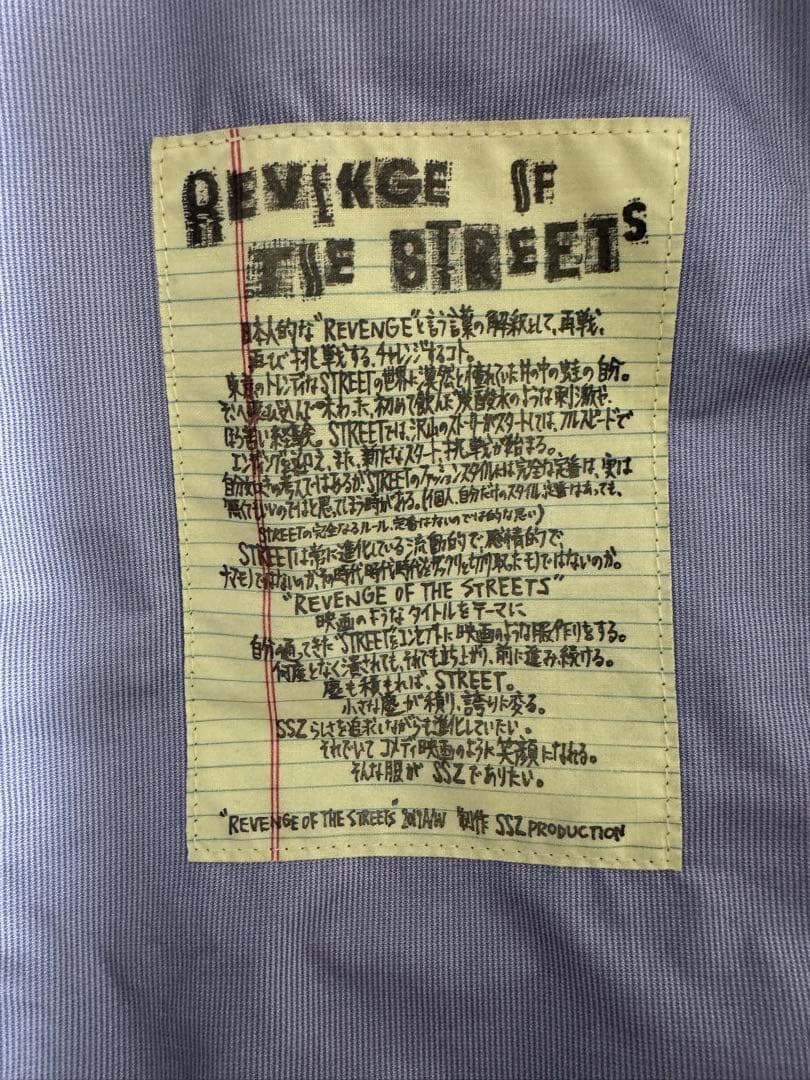 REVENGE OF
THE STREETS
日本人的な"REVENGE"と言う言葉の解釈として、再戦、
再び挑戦する、チャレンジするコト。
東京のトレンディなSTREETの世界に漠然と憧れていた井の中の蛙の自分。
そこへ飛び込んで味わった、初めて飲んだ炭酸水のような刺激や
ほろ苦い経験。STREETでは、沢山のストーリーがスタートしては、フルスピードで
エンディングを迎え、また、新たなスタート、挑戦が始まる。
自分なりの考えではあるが、STREETのファッションスタイルには完全な定番は、実は
無くてもいいのではと思ってしまう時がある。(個人、自分だけのスタイル、定番はあっても、
STREETの完全なるルール、定番はないのでは的な思い)
STREETは常に進化している流動的で、感情的で、
ナマモノではないのか、その時代、時代時代をザックリと切り取ったモノではないのか。
"REVENGE OF THE STREETS"
映画のようなタイトルをテーマに
自分の通ってきた"STREET"をコンセプトに映画のような服作りをする。
何度となく潰されても、それでも立ち上がり、前に進み続ける。
塵も積もれば、STREET。
小さな塵が積り、誇りに変る。
SSZらしさを追求しながらも進化していたい。
それでいてコメディ映画のように笑顔になれる。
そんな服がSSZでありたい。
"REVENGE OF THE STREETS" A/W 製作 SSZ PRODUCTION